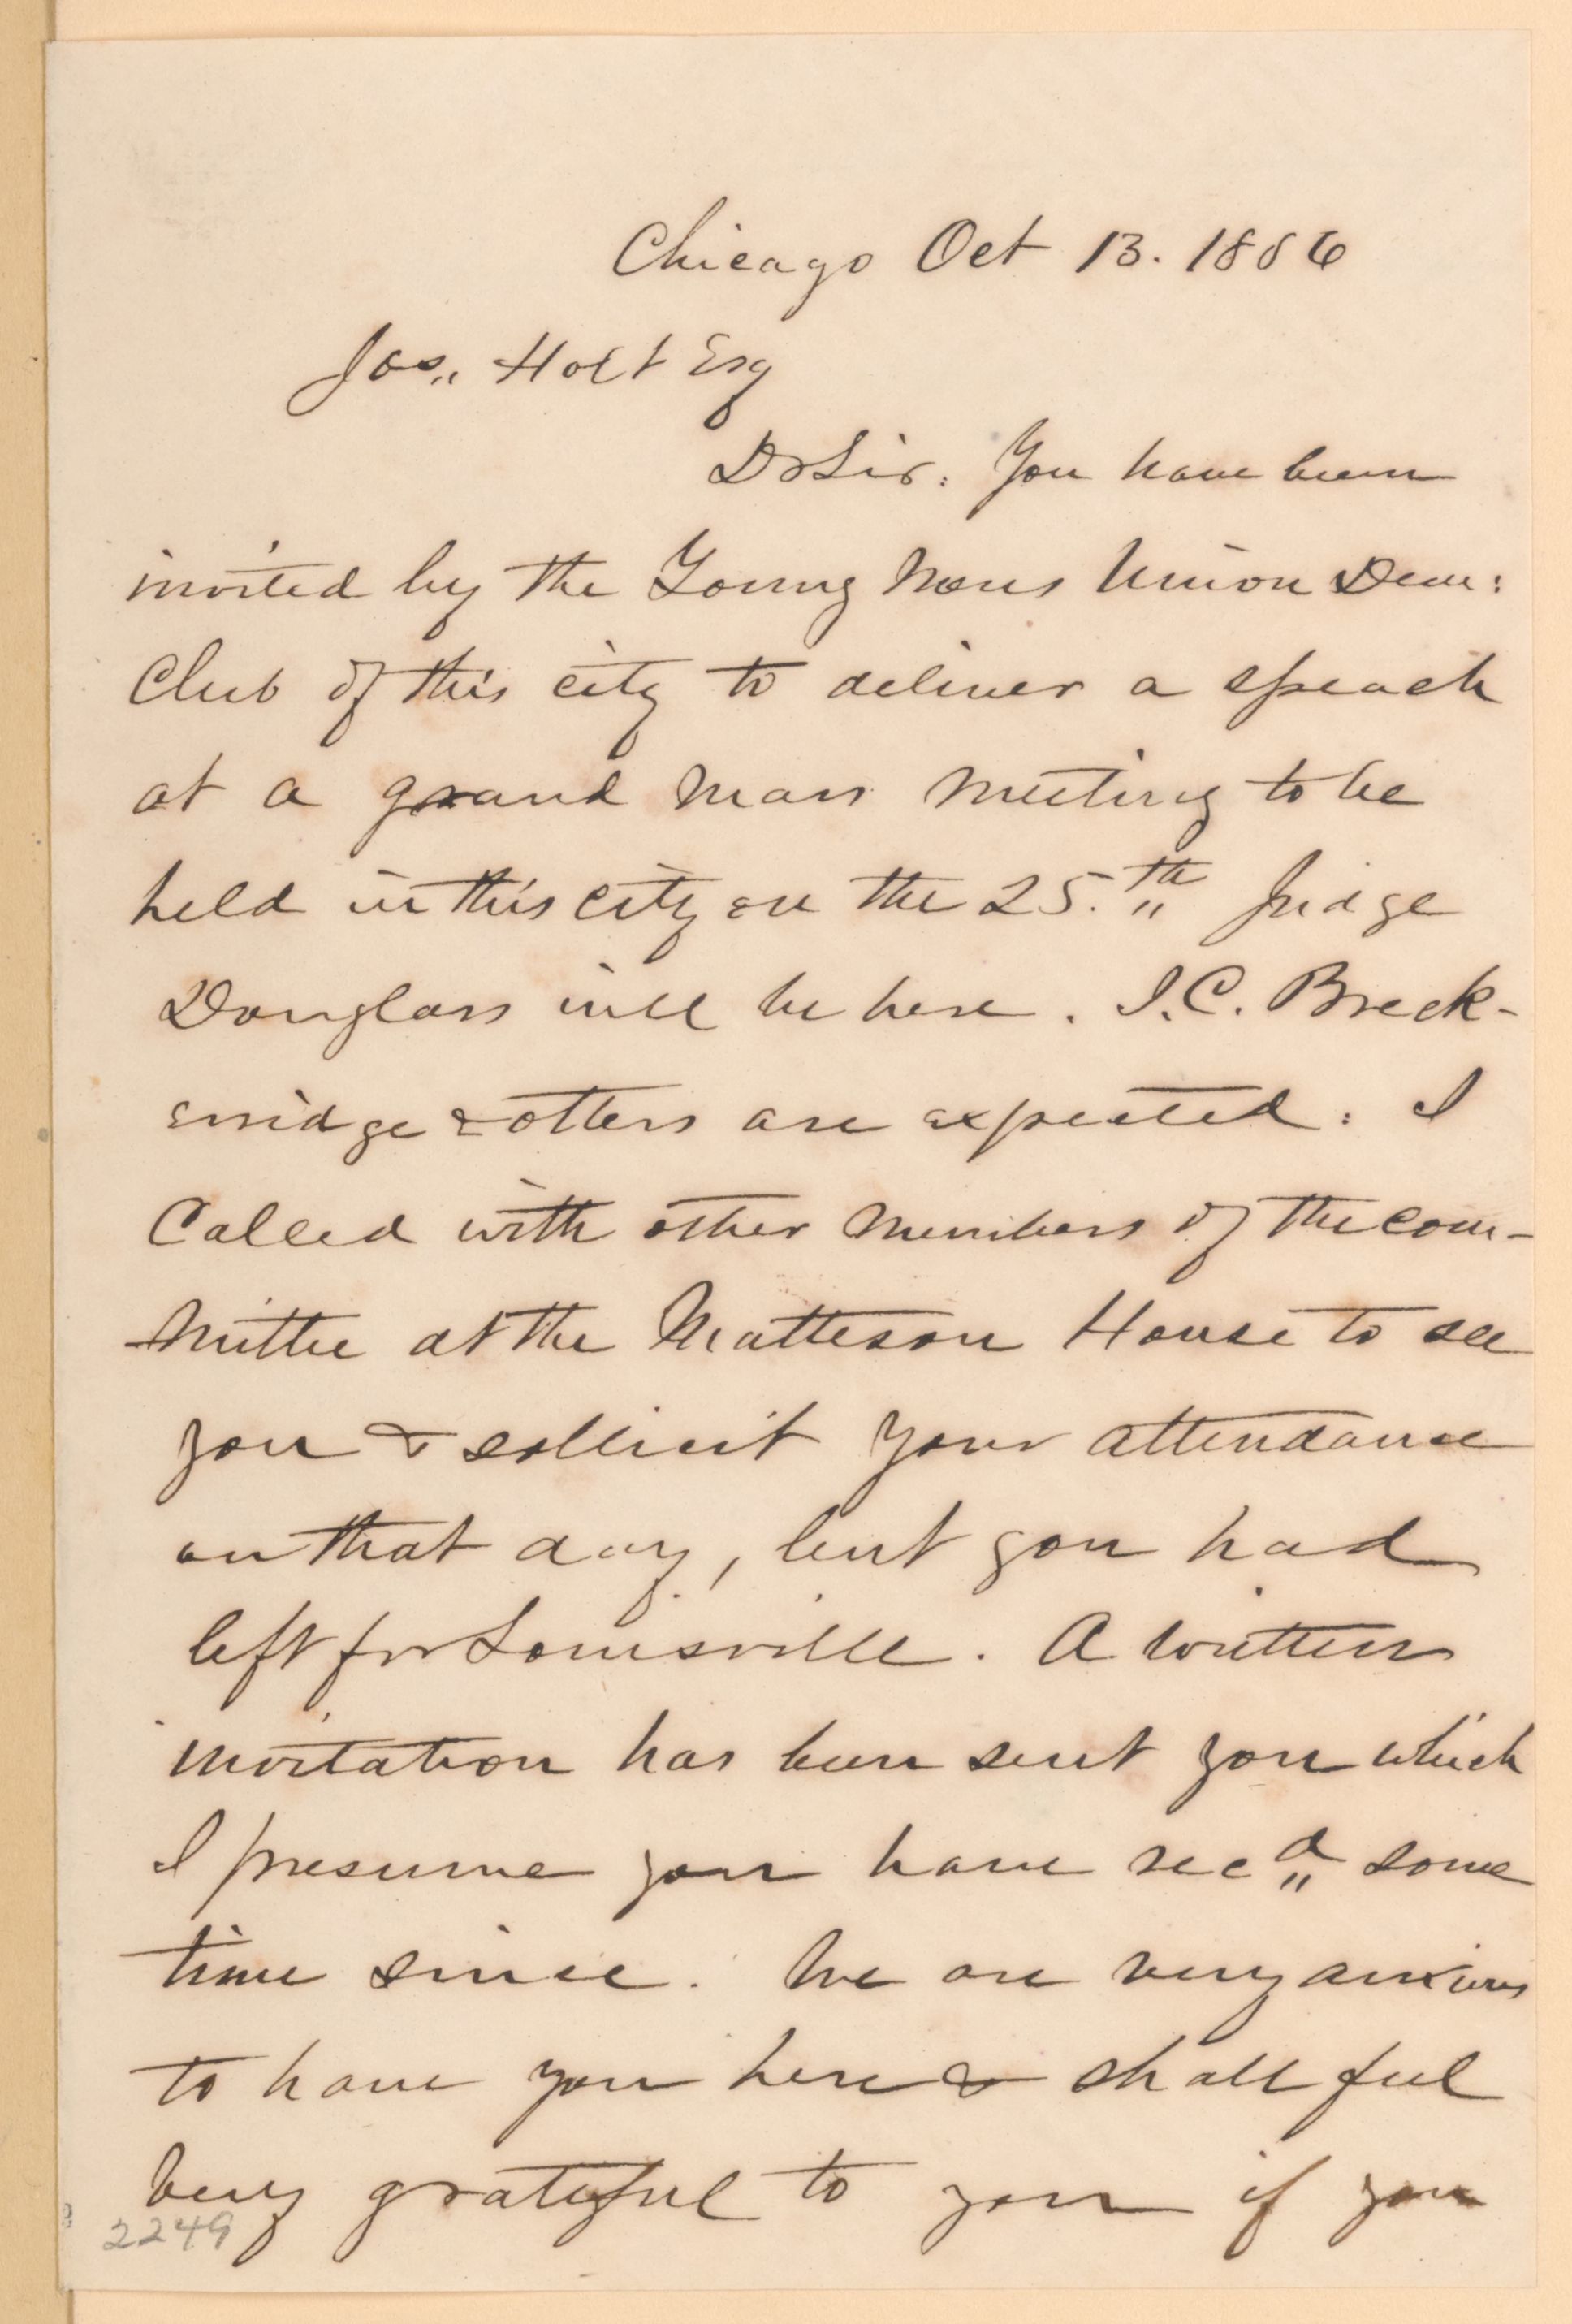 Chicago Oct 13. 1856
Jos,, Holt Esq
Dr Sir: You have been
invited by the Young Mens Union Dem:
Club of this city to deliver a speach
at a grand mass meeting to be
held in this city on the 25.th Judge
Douglass will be here. J.C. Breck-
enridge & others are expected: I
Called with other members of the com-
mittee at the Matteson House to see
you & sollicit your attendance
on that day, but you had
left for Louisville. A written
invitation has been sent you which
I presume you have recd some
time since. We are very anxious
to have you here & shall feel
very grateful to you if you
2249